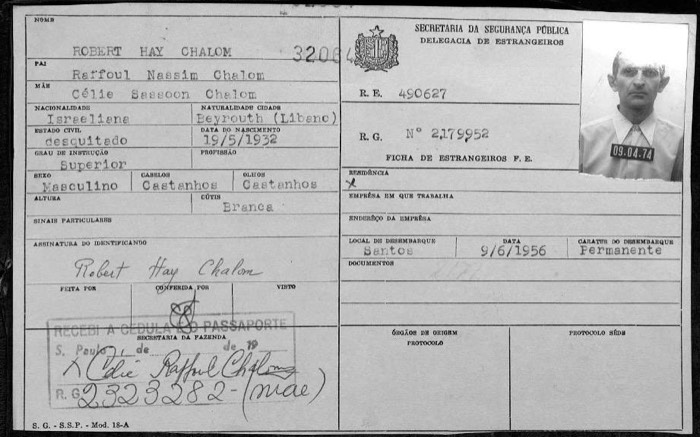 NOME
ROBERT HAY CHALOM
PAI
Raffoul Nassim Chalom
MÃE
Célie Sassoon Chalom
NACIONALIDADE NATURALIDADE CIDADE
Israeliana Beyrouth (Libano)
ESTADO CIVIL DATA DO NASCIMENTO
desquitado 19/5/1932
GRAU DE INSTRUÇÃO PROFISSÃO
Superior
SEXO CABELOS OLHOS
Masculino Castanhos Castanhos
ALTURA CÚTIS
Branca
SINAIS PARTICULARES
ASSINATURA DO IDENTIFICANDO
Robert Hay Chalom
FEITA POR CONFERIDA POR VISTO
SECRETARIA DA FAZENDA
RECEBI A CEDULA E O PASSAPORTE
S. Paulo, de de 19
X Célie Raffoul Chalom
R. G. 2323282 - (mãe)
S. G. - S.S.P. - Mod. 18-A
SECRETARIA DA SEGURANÇA PÚBLICA
DELEGACIA DE ESTRANGEIROS
R. E. 490627
R. G. Nº 2,179952
FICHA DE ESTRANGEIROS F. E.
09.04.74
RESIDÊNCIA
x
EMPRÊSA EM QUE TRABALHA
ENDERÊÇO DA EMPRÊSA
LOCAL DE DESEMBARQUE DATA CARATER DO DESEMBARQUE
Santos 9/6/1956 Permanente
DOCUMENTOS
ÓRGÃOS DE ORIGEM PROTOCOLO SÉDE
PROTOCOLO